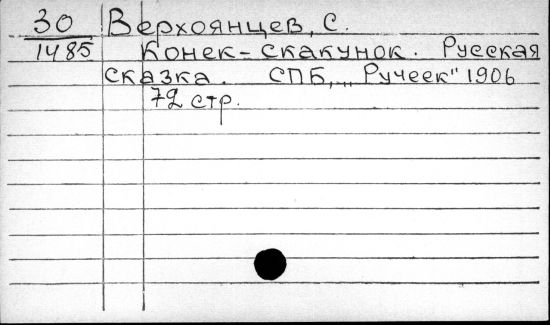 30 Верхоянцев, С.
1485 Конек-скакунок. Русская
сказка. СПБ, „Ручеек" 1906
72 стр.